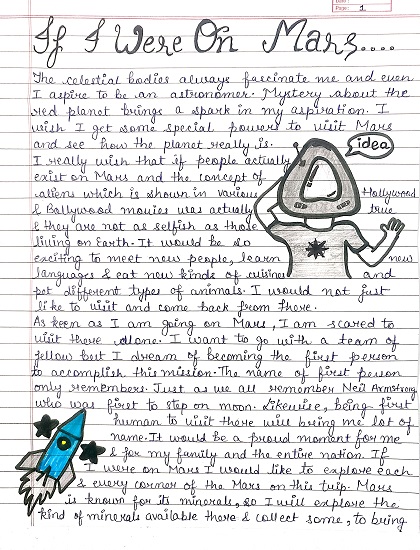 Date :
Page : 1
If I Were On Mars....
The celestial bodies always fascinate me and even
I aspire to be an astronomer. Mystery about the
red planet brings a spark in my aspiration. I
wish I get some special powers to visit Mars
and see how the planet really is.
idea
I really wish that if people actually
exist on Mars and the concept of
aliens which is shown in various Hollywood
& Bollywood movies was actually true
& they are not as selfish as those
living on Earth. It would be so
exciting to meet new people, learn new
languages & eat new kinds of cuisine and
pet different types of animals. I would not just
like to visit and come back from there.
As keen as I am going on Mars, I am scared to
visit there alone. I want to go with a team of
fellow but I dream of becoming the first person
to accomplish this mission. The name of first person
only remembers. Just as we all remember Neil Armstrong
who was first to step on moon. Likewise, being first
human to visit there will bring me lot of
name. It would be a proud moment for me
& for my family and the entire nation. If
I were on Mars I would like to explore each
& every corner of the Mars on this trip. Mars
is known for its minerals, so I will explore the
kind of minerals available there & collect some, to bring